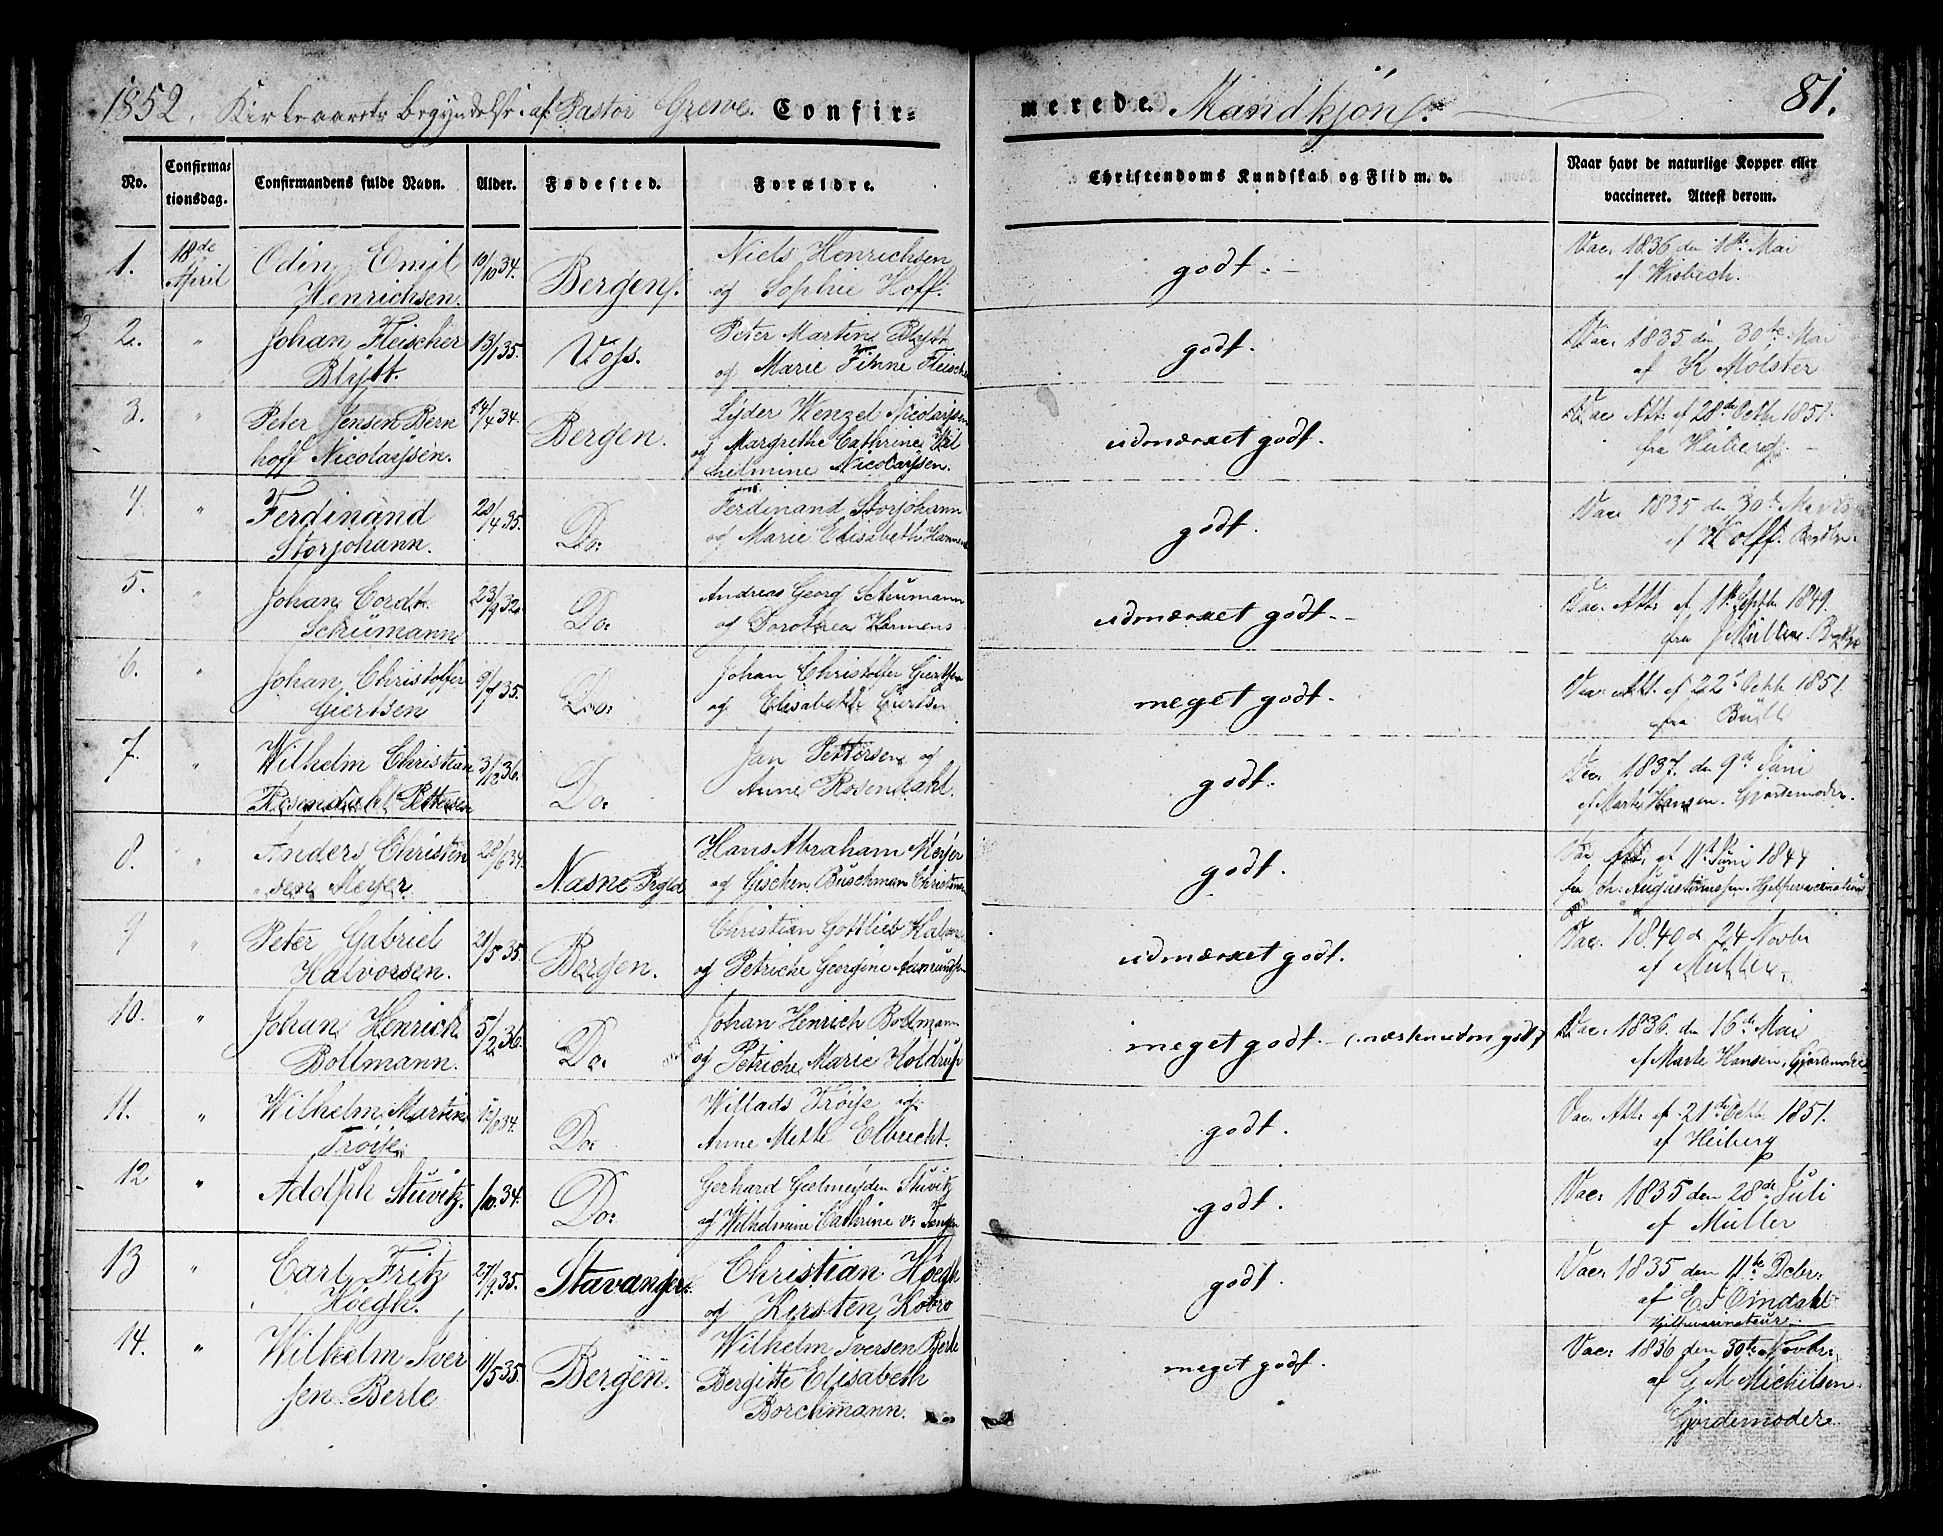 1852. Kirkeaarets begyndelse af Pastor Greve. Confir=
merede. Mandkjøn. 81.
No. Confirma=tionsdag. Confirmandens fulde Navn. Alder. Fødested. Forældre. Christendoms Kundskab og Flid m. v. Naar havt de naturlige Kopper eller
vaccineret. Attest derom.
1. 18de April Odin Emil 10/10 34. Bergen. Niels Henrichsen godt. Vac. 1836 den 18de Mai
Henrichsen. og Sophie Hoff. af Wisbech.
2. " Johan Fleischer 13/1 35. Voss. Peter Martin Blytt godt. Vac. 1835 den 30te Mai
Blytt. og Marie Finne Fleischer af K Molster
3. " Peter Jensen Bern 14/4 34. Bergen. Lyder Wenzel Nicolaysen udmærket godt. Vac. Att. af 28de Octb 1851.
hoff Nicolaysen. og Margrethe Cathrine Wil fra Heiberg.
helmine Nicolaysen.
4. " Ferdinand 20/4 35. Do. Ferdinand Storjohann godt. Vac. 1835 den 30te
Storjohann. og Marie Elisabeth af Wolff.
5. " Johan Cordt 23/9 32. Do. Andreas Georg Schumann udmærket godt. Vac. Att. af 1ste Septb 1849.
Schumann og Dorothea Harmens fra J Müller.
6. " Johan Christoffer 9/7 35. Do. Johan Christoffer Giertsen meget godt. Vac. Att. af 22de Octb 1851.
Giertsen og Elisabeth Giertsen fra Büll
7. " Wilhelm Christian 3/12 36. Do. Jan Pettersen og godt. Vac. 1837. den 9de Juni
Rosendahl Pettersen Anne Rosendahl. af Marte Hansen. Gjordemoder.
8. " Anders Christen 28/6 34. Nasne Prgld Hans Abraham Meyer godt. Vac. Att. af 11te Juni 1844
sen Meyer. og Gischen Buschman Christensen fra Joh. Augustinussen. Hjelpevaccinateur
9 " Peter Gabriel 21/5 35. Bergen. Christian Gottlieb Halvors. udmærket godt. Vac. 1840 d 24 Novbr
Halvorsen. og Petriche Georgine Aamundsen af Müller.
10. " Johan Henrich 5/2 36. Do. Johan Henrich Bollmann meget godt. (næsten udm godt) Vac. 1836. den 16de Mai
Bollmann. og Petriche Marie Holdrup af Marte Hansen, Gjordemoder
11. " Wilhelm Martin 34. Do. Willads Trøye og godt. Vac. Att. af 21de Octb. 1851.
Trøye. Anne Mette Elbrecht. af Heiberg
12 " Adolph Stuvitz. /10 34. Do. Gerhard Geelmeyden Stuvitz godt. Vac. 1835 den 28de Juli
og Wilhelmine Cathrine v. Tangen af Müller
13 " Carl Fritz 27/9 35. Stavanger. Christian Høegh godt. Vac. 1835 den 11te Dcbr.
Høegh. og Kirsten Kobro af E. J Omdahl
Hjelpevaccinateur.
14. " Wilhelm Iver 11/5 35. Bergen. Wilhelm Iversen Berle meget godt. Vac. 1836 den 30te Novbr,
sen Berle Bergitte Elisabeth af G M Michelsen.
Borchmann. Gjordemoder